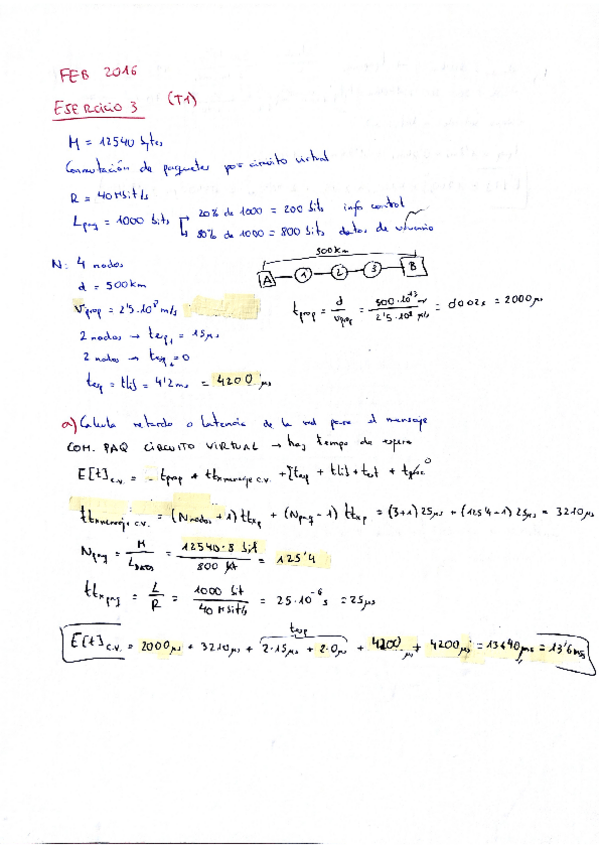 FEB 2016
EJERCICIO 3 (T1)
M = 12540 bytes
Conmutación de paquetes por circuito virtual
R = 40 Mbit/s
Lpaq = 1000 bits
20% de 1000 = 200 bits info control
80% de 1000 = 800 bits datos de usuario
N: 4 nodos
500 km
A 1 2 3 B
d = 500 km
Vprop = 2'5·10⁸ m/s
tprop = d / Vprop = 500·10¹³ m / 2'5·10⁸ m/s = 0'002s = 2000 μs
2 nodos → tesp₁ = 15 μs
2 nodos → = 0
tlib = 4'2 ms = 4200 μs
a) Calcula retardo o latencia de la red para el mensaje
COM. PAQ CIRCUITO VIRTUAL → hay tiempo de espera
E[t]c.v. = tprop + ttxmensaje c.v. + + tlib + test + tproc⁰
ttxmensaje c.v. = (Nnodos + 1) ttxp + (Npaq - 1) ttxp = (3+1) 25 μs + (1254-1) 25 μs = 3210 μs
Npaq = M / LDATOS = 12540·8 bit / 800 bit = 125'4
ttxpaq = L / R = 1000 bit / 40 Mbit/s = 25·10⁻⁶ s = 25 μs
tesp
E[t]c.v. = 2000 μs + 3210 μs + 2·15 μs + 2·0 μs + 4200 μs + 4200 μs = 13640 μs = 13'6 ms